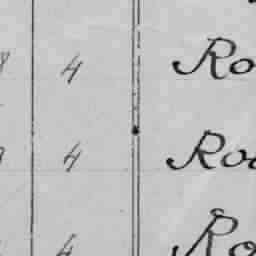 4 Ro
4 Ro
4 Ro